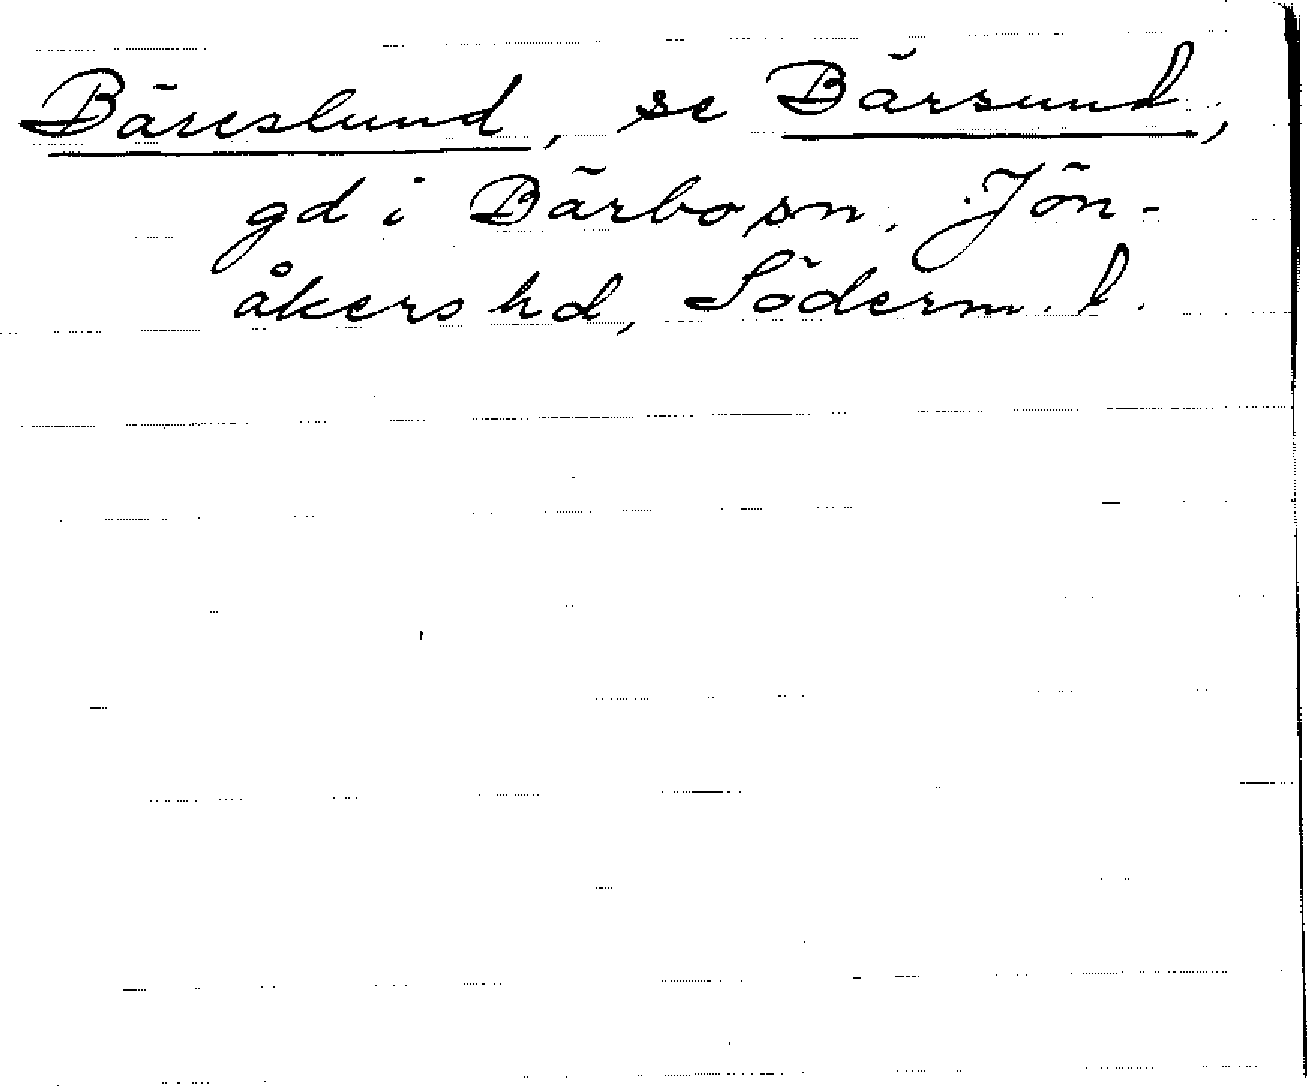 Bäreslund, se Bärsund,
gd i Bärbo sn, Jön-
åkers hd, Söderm. l.